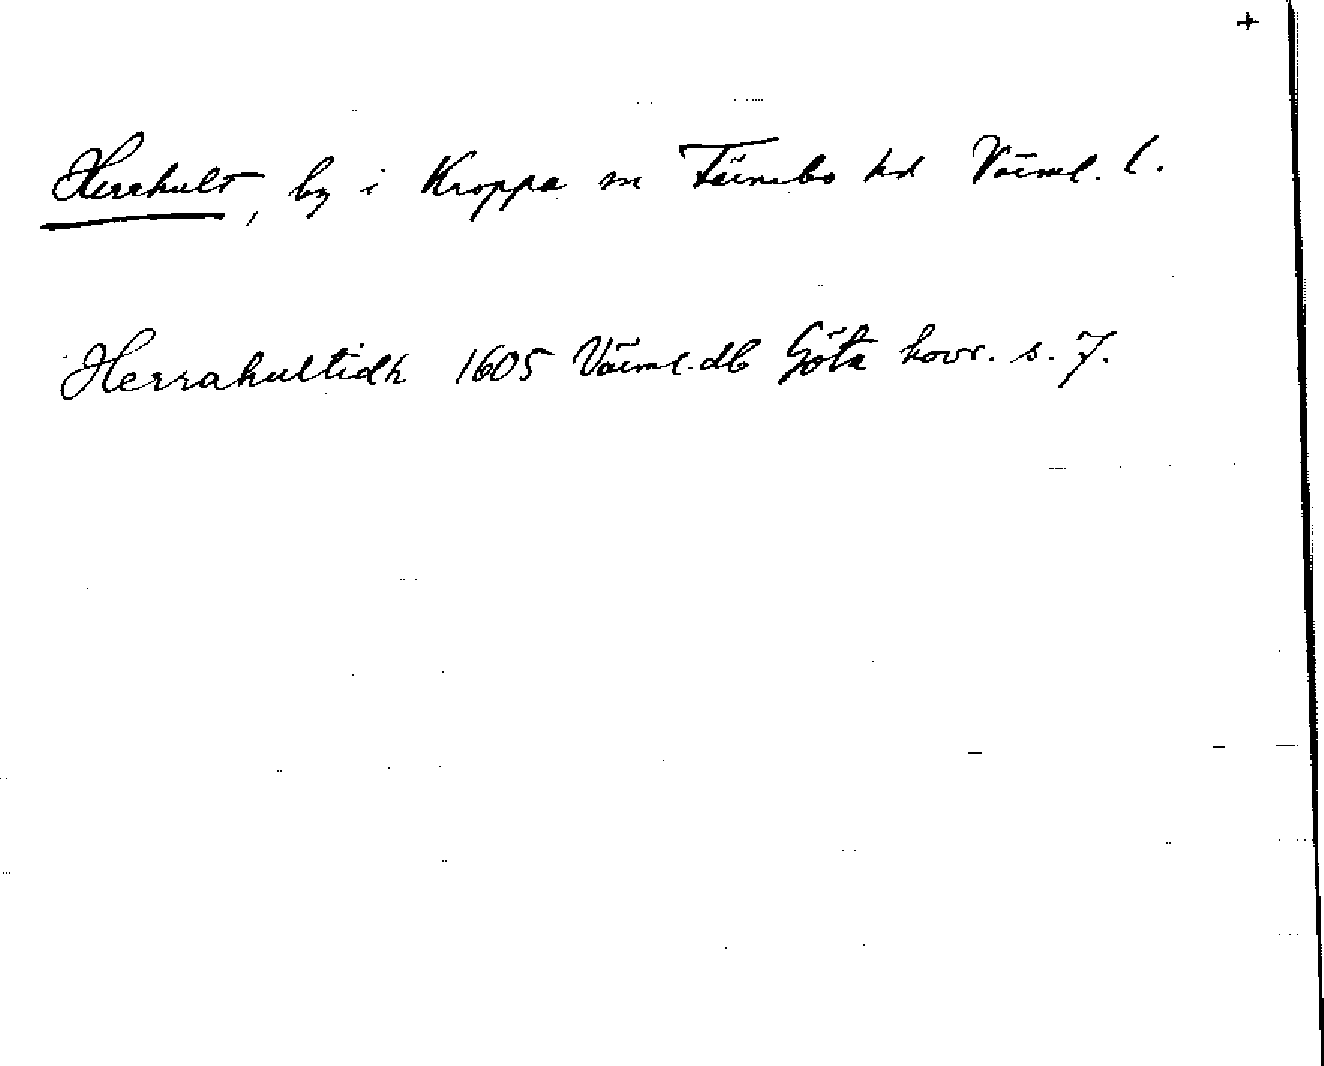 +
Herrhult, by i Kroppa sn Färnebo hd Värml. l.
Herrahultidh 1605 Värml.db Göta hovr. s. 7.